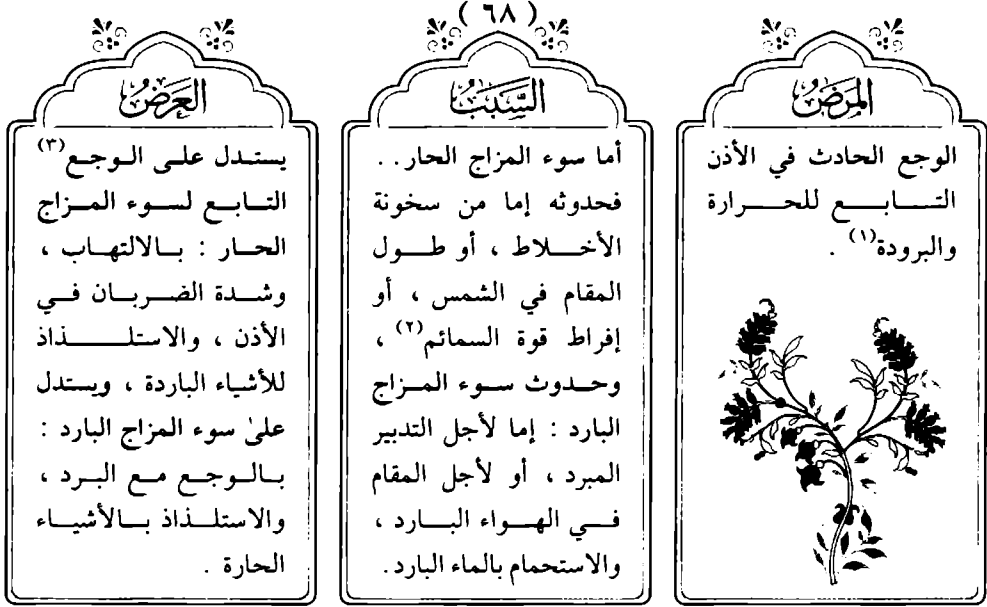 ( ٦٨ )
المَرَضُ
الوجع الحادث في الأذن
التابع للحرارة
والبرودة(١) .
السَّبَبُ
أما سوء المزاج الحار . .
فحدوثه إما من سخونة
الأخلاط ، أو طول
المقام في الشمس ، أو
إفراط قوة السمائم(٢) ،
وحدوث سوء المزاج
البارد : إما لأجل التدبير
المبرد ، أو لأجل المقام
في الهواء البارد ،
والاستحمام بالماء البارد .
العَرَضُ
يستدل على الوجع(٣)
التابع لسوء المزاج
الحار : بالالتهاب ،
وشدة الضربان في
الأذن ، والاستلذاذ
للأشياء الباردة ، ويستدل
علىٰ سوء المزاج البارد :
بالوجع مع البرد ،
والاستلذاذ بالأشياء
الحارة .